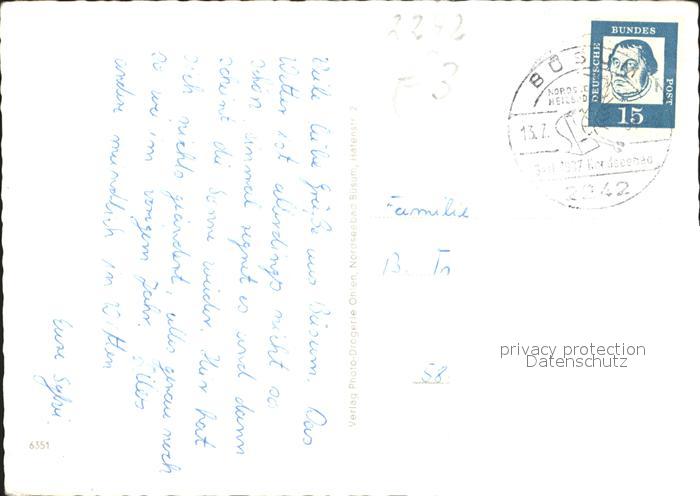 Viele liebe Grüße aus Büsum. Das
Wetter ist allerdings nicht so
schön, einmal regnet es und dann
scheint die Sonne wieder. Hier hat
sich nichts geändert, alles genau noch
so wie im vorigem Jahr. Alles
andere mündlich in Witten
Eure Sylvi.
6351
Verlag Photo-Drogerie Onlen, Nordseebad Büsum, Hafenstr. 2
2242
F 3
BÜS
NORDS
HEILB
13.7.
Seit 1837 Nordseebad
2242
DEUTSCHE
BUNDES
POST
15
Familie
B. Tr
privacy protection
Datenschutz